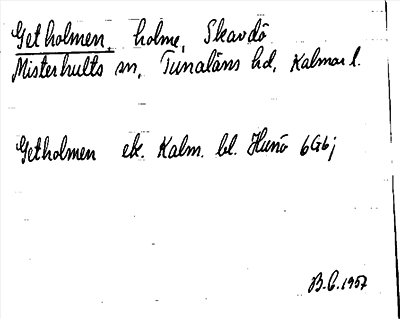 Getholmen, holme, Skavdö
Misterhults sn, Tunaläns hd, Kalmar l.
Getholmen ek. Kalm. bl. Hunö 6G6j
B.C. 1957